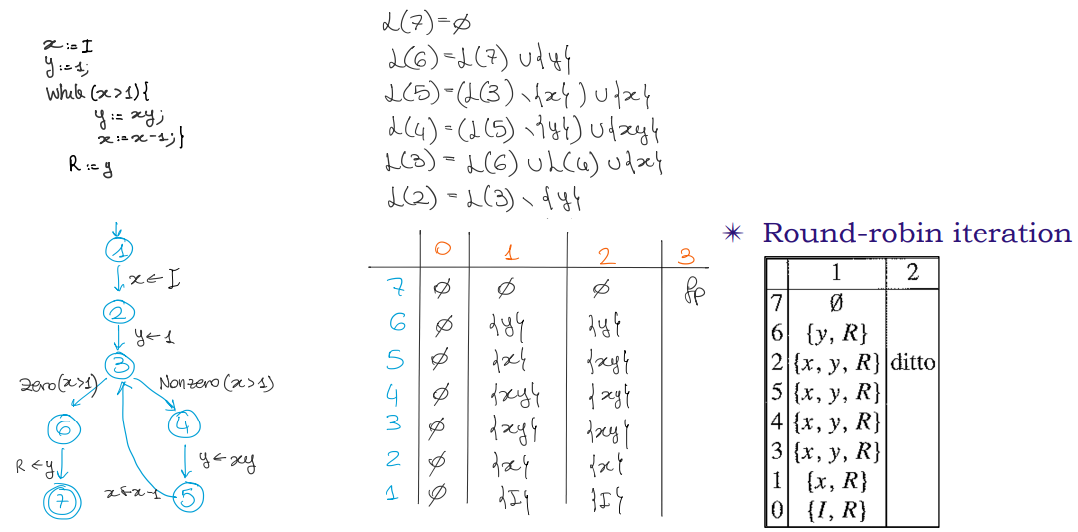 x := I
y := 1;
while (x>1){
y := xy;
x := x-1; }
R := y
1
x ← I
2
y ← 1
3
Zero(x>1)
Nonzero(x>1)
6
4
R ← y
y ← xy
x ← x-1
7
5
L(7) = ∅
L(6) = L(7) ∪ {y}
L(5) = (L(3) \ {x}) ∪ {x}
L(4) = (L(5) \ {y}) ∪ {xy}
L(3) = L(6) ∪ L(4) ∪ {x}
L(2) = L(3) \ {y}
0 1 2 3
7 ∅ ∅ ∅ fp
6 ∅ {y} {y}
5 ∅ {x} {xy}
4 ∅ {xy} {xy}
3 ∅ {xy} {xy}
2 ∅ {x} {x}
1 ∅ {I} {I}
✴ Round-robin iteration
1 2
7 Ø
6 {y, R}
2 {x, y, R} ditto
5 {x, y, R}
4 {x, y, R}
3 {x, y, R}
1 {x, R}
0 {I, R}